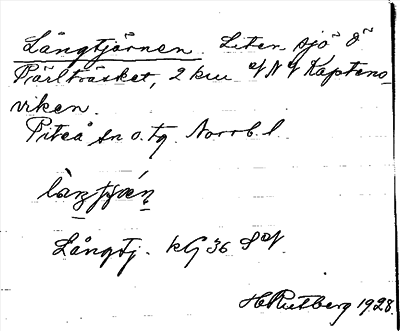 Långtjärnen. Liten sjö å
Pärlträsket, 2 km af N af Kaptens-
viken.
Piteå sn o. tg. Norrb. l.
Långtj. kG 36
H Rutberg 1928.